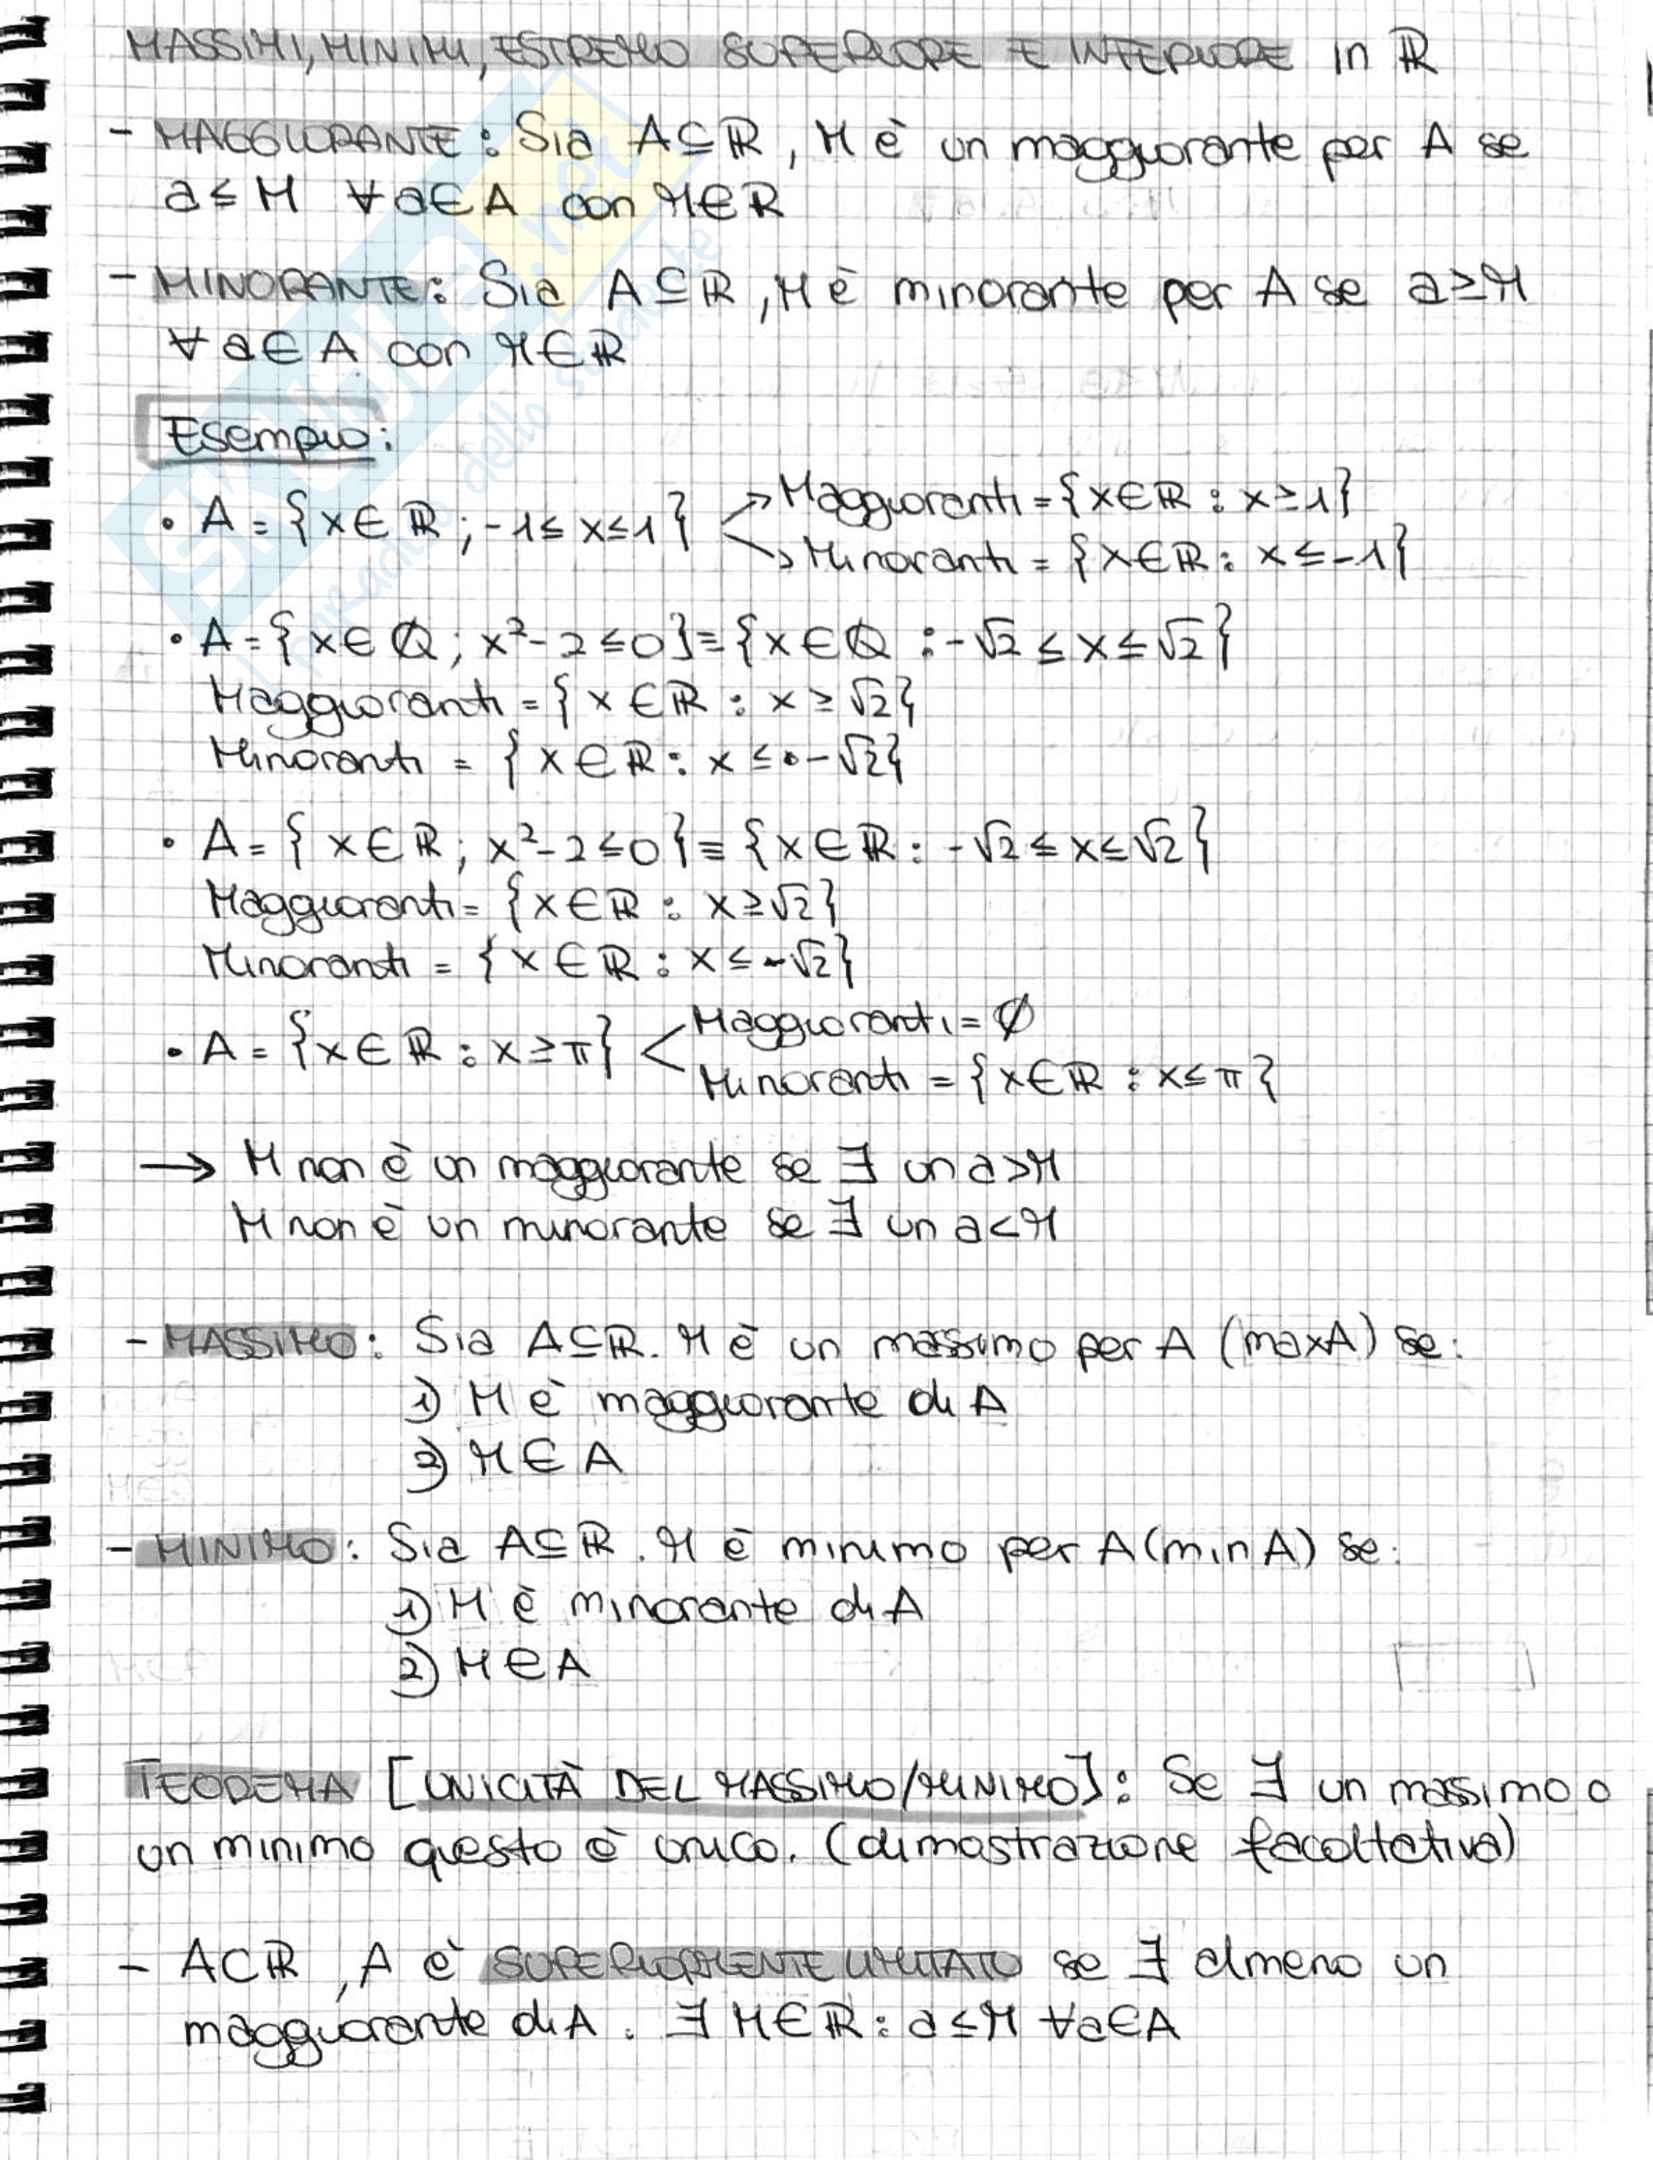 MASSIMI, MINIMI, ESTREMO SUPERIORE E INFERIORE in ℝ
- MAGGIORANTE: Sia A⊆ℝ, M è un maggiorante per A se
a≤M ∀a∈A con M∈ℝ
- MINORANTE: Sia A⊆ℝ, M è minorante per A se a≥M
∀a∈A con M∈ℝ
Esempio:
• A = {x∈ℝ; -1≤x≤1}
→ Maggioranti = {x∈ℝ : x≥1}
→ Minoranti = {x∈ℝ : x≤-1}
• A = {x∈ℚ; x²-2≤0} ≡ {x∈ℚ : -√2≤x≤√2}
Maggioranti = {x∈ℝ : x≥√2}
Minoranti = {x∈ℝ : x≤-√2}
• A = {x∈ℝ; x²-2≤0} ≡ {x∈ℝ : -√2≤x≤√2}
Maggioranti = {x∈ℝ : x≥√2}
Minoranti = {x∈ℝ : x≤-√2}
• A = {x∈ℝ : x≥π}
Maggioranti = ∅
Minoranti = {x∈ℝ : x≤π}
→ M non è un maggiorante se ∃ un a>M
M non è un minorante se ∃ un a<M
- MASSIMO: Sia A⊆ℝ. M è un massimo per A (maxA) se:
1) M è maggiorante di A
2) M∈A
- MINIMO: Sia A⊆ℝ. M è minimo per A (min A) se:
1) M è minorante di A
2) M∈A
TEOREMA [UNICITÀ DEL MASSIMO/MINIMO]: Se ∃ un massimo o
un minimo questo è unico. (dimostrazione facoltativa)
- A⊂ℝ, A è SUPERIORMENTE LIMITATO se ∃ almeno un
maggiorante di A. ∃ M∈ℝ : a≤M ∀a∈A
SKUOLA.net
il paradiso dello studente